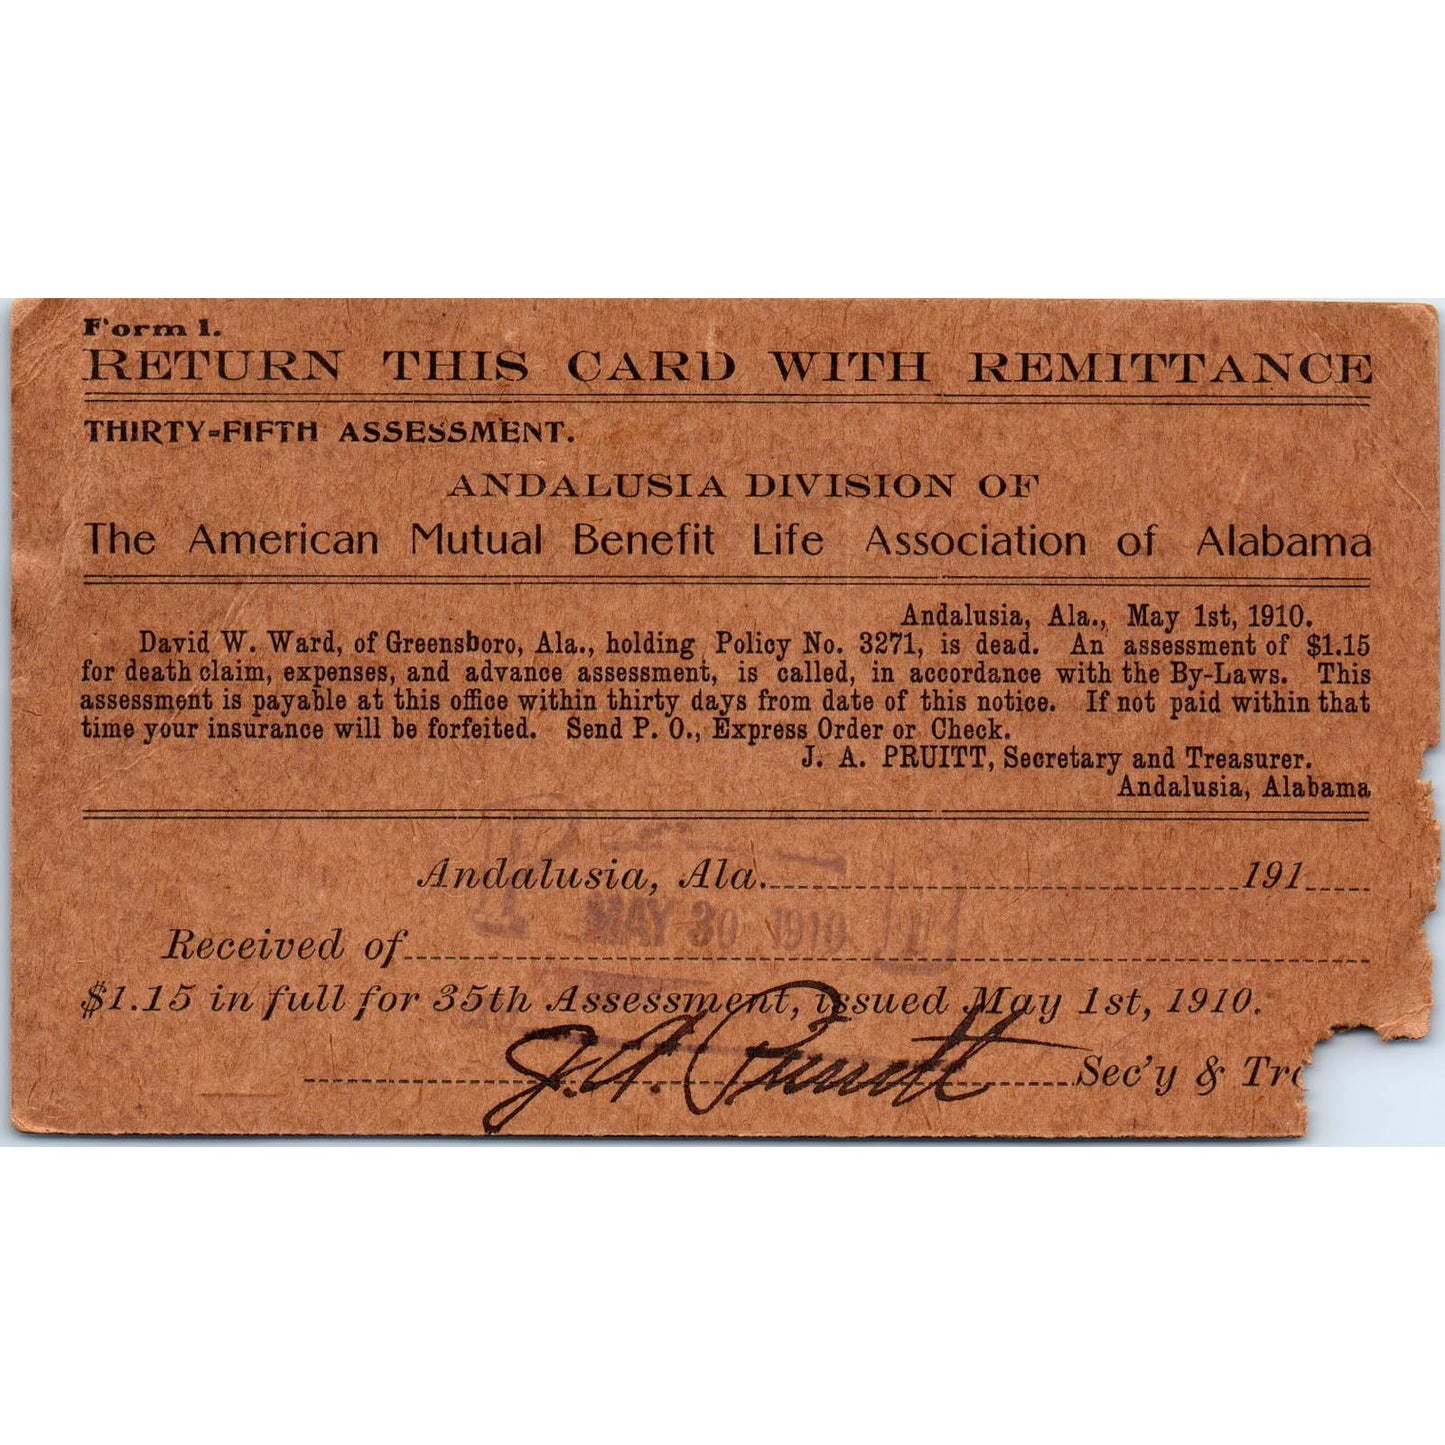 Form 1.
RETURN THIS CARD WITH REMITTANCE
THIRTY-FIFTH ASSESSMENT.
ANDALUSIA DIVISION OF
The American Mutual Benefit Life Association of Alabama
Andalusia, Ala., May 1st, 1910.
David W. Ward, of Greensboro, Ala., holding Policy No. 3271, is dead. An assessment of $1.15
for death claim, expenses, and advance assessment, is called, in accordance with the By-Laws. This
assessment is payable at this office within thirty days from date of this notice. If not paid within that
time your insurance will be forfeited. Send P. O., Express Order or Check.
J. A. PRUITT, Secretary and Treasurer.
Andalusia, Alabama
Andalusia, Ala. 191
MAY 30 1910
Received of
$1.15 in full for 35th Assessment, issued May 1st, 1910.
J. A. Pruitt Sec'y &